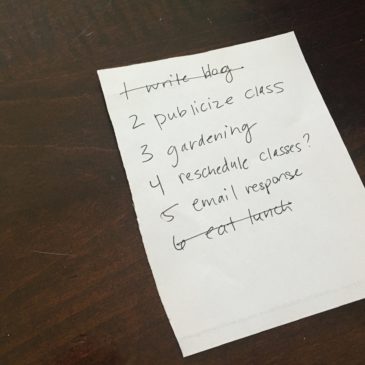 1 write blog
2 publicize class
3 gardening
4 reschedule classes?
5 email response
6 eat lunch